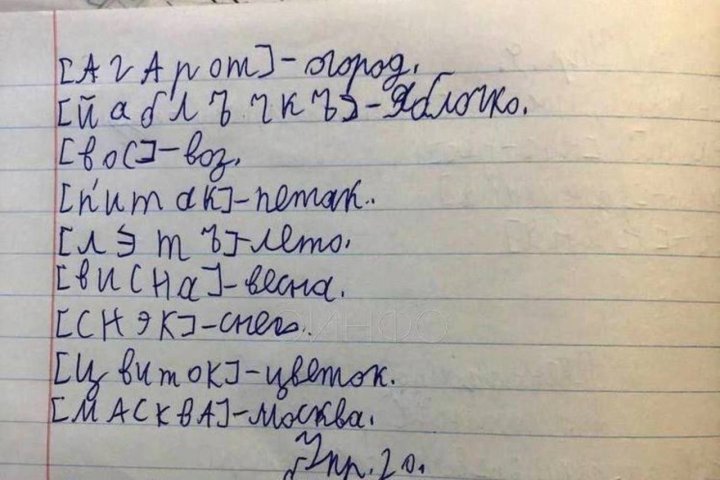 [АгАрот]-огород.
[йаблъчкъ]-Яблочко.
[вос]-воз.
[п'итак]-петак.
[лэтъ]-лето.
[висна]-весна.
[снэк]-снег.
[цвиток]-цветок.
[МАСКВА]-Москва.
Упр.20.